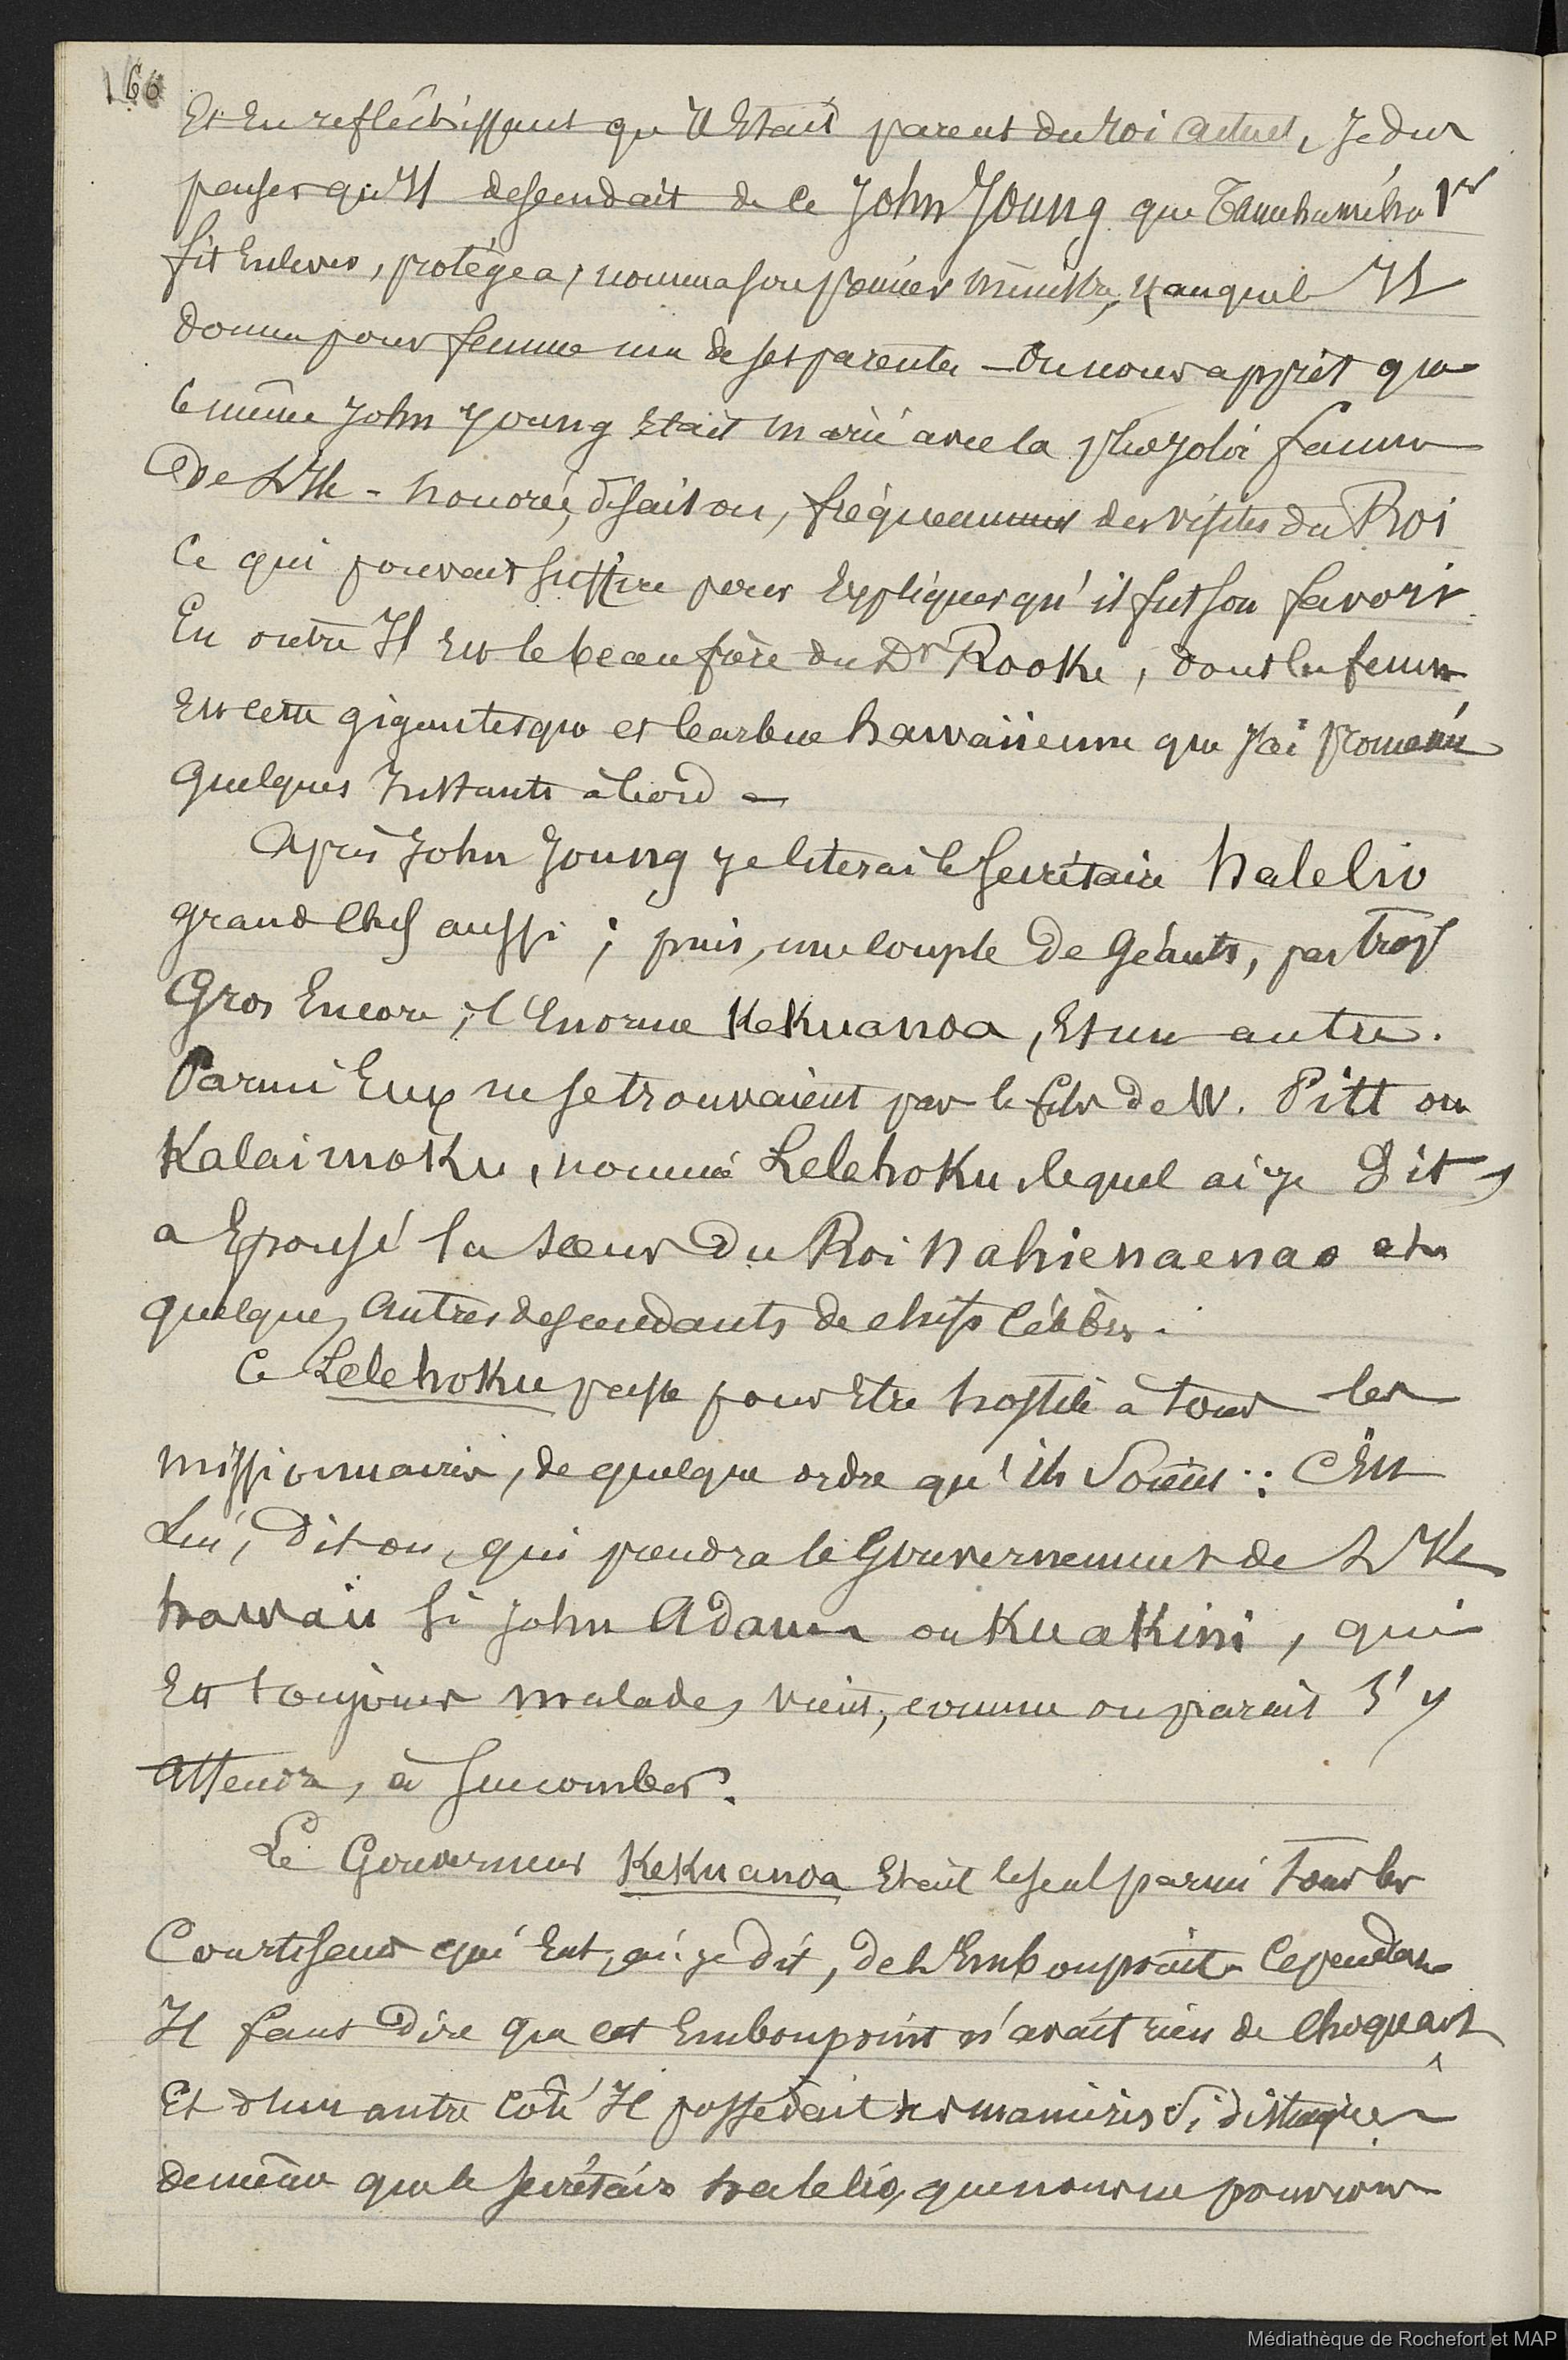 166
Et En reflêchissant qu'Il Etait parent du roi actuel, Je dus
penser qu'Il descendait de ce John Young que Tamehameha 1er
fit Enlever, protégea, nomma son premier ministre, & auquel Il
donna pour femme une de ses parentes – On nous apprit que
le même John Young Etait marié avec la plus Jolie femme
De L'Ile - honorée, disait on, fréquemment des visites du Roi
Ce qui pouvait suffire pour Expliquer qu'il fut son favori
En outre Il Est le beau frère du Dr Rooke, dont la femme
Est cette gigantesque et barbue hawaiienne que J'ai promené
Quelques Instants à bord –
Après John Young Je citerai le Secrétaire haleliv
grand Chef aussi ; puis, une couple De Géants, pas trop
Gros Encore ; l'Enorme Kekuanoa, Et un autre.
Parmi Eux ne se trouvaient pas le fils de W. Pitt ou
Kalaimoku, nommé Lelehoku, lequel ai-je Dit,
a Epousé la sœur Du Roi Nahienaenao et
quelques autres descendants de chefs Célèbres.
Ce Lelehoku passe pour Etre hostile à tous les
missionnaires, de quelque ordre qu'ils Soient : C'Est
Lui, Dit-on, qui prendra le Gouvernement de L'Ile
hawaii si John Adams ou Kuakini, qui
Est toujours malade, vient, comme on parait S'y
Attendre, à Succomber.
Le Gouverneur Kekuanoa Etait le seul parmi tous les
Courtisans qui Eut, ai-je dit, de L'Embonpoint Cependant
Il faut Dire que cet Embonpoint n'avait rien de Choquant
Et D'un autre Coté Il possedait des manières Si distinguées
de même que le Secrétaire halelio, que nous ne pouvions
Médiathèque de Rochefort et MAP